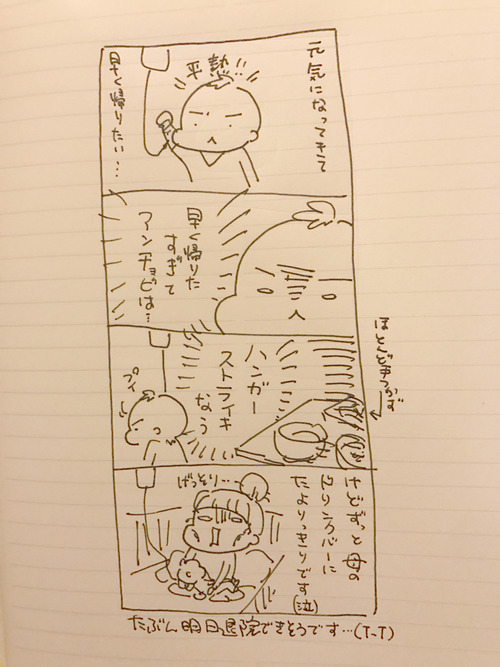 元気になってきて
平熱!!
早く帰りたい…
早く帰りた
すぎて
アンチョビは…
ほとんど手つかず
ハンガー
ストライキ
なう
プイ
けどずっと母の
ドリンクバーに
たよりっきりです
(泣)
げっそり…
たぶん明日退院できそうです…(T-T)